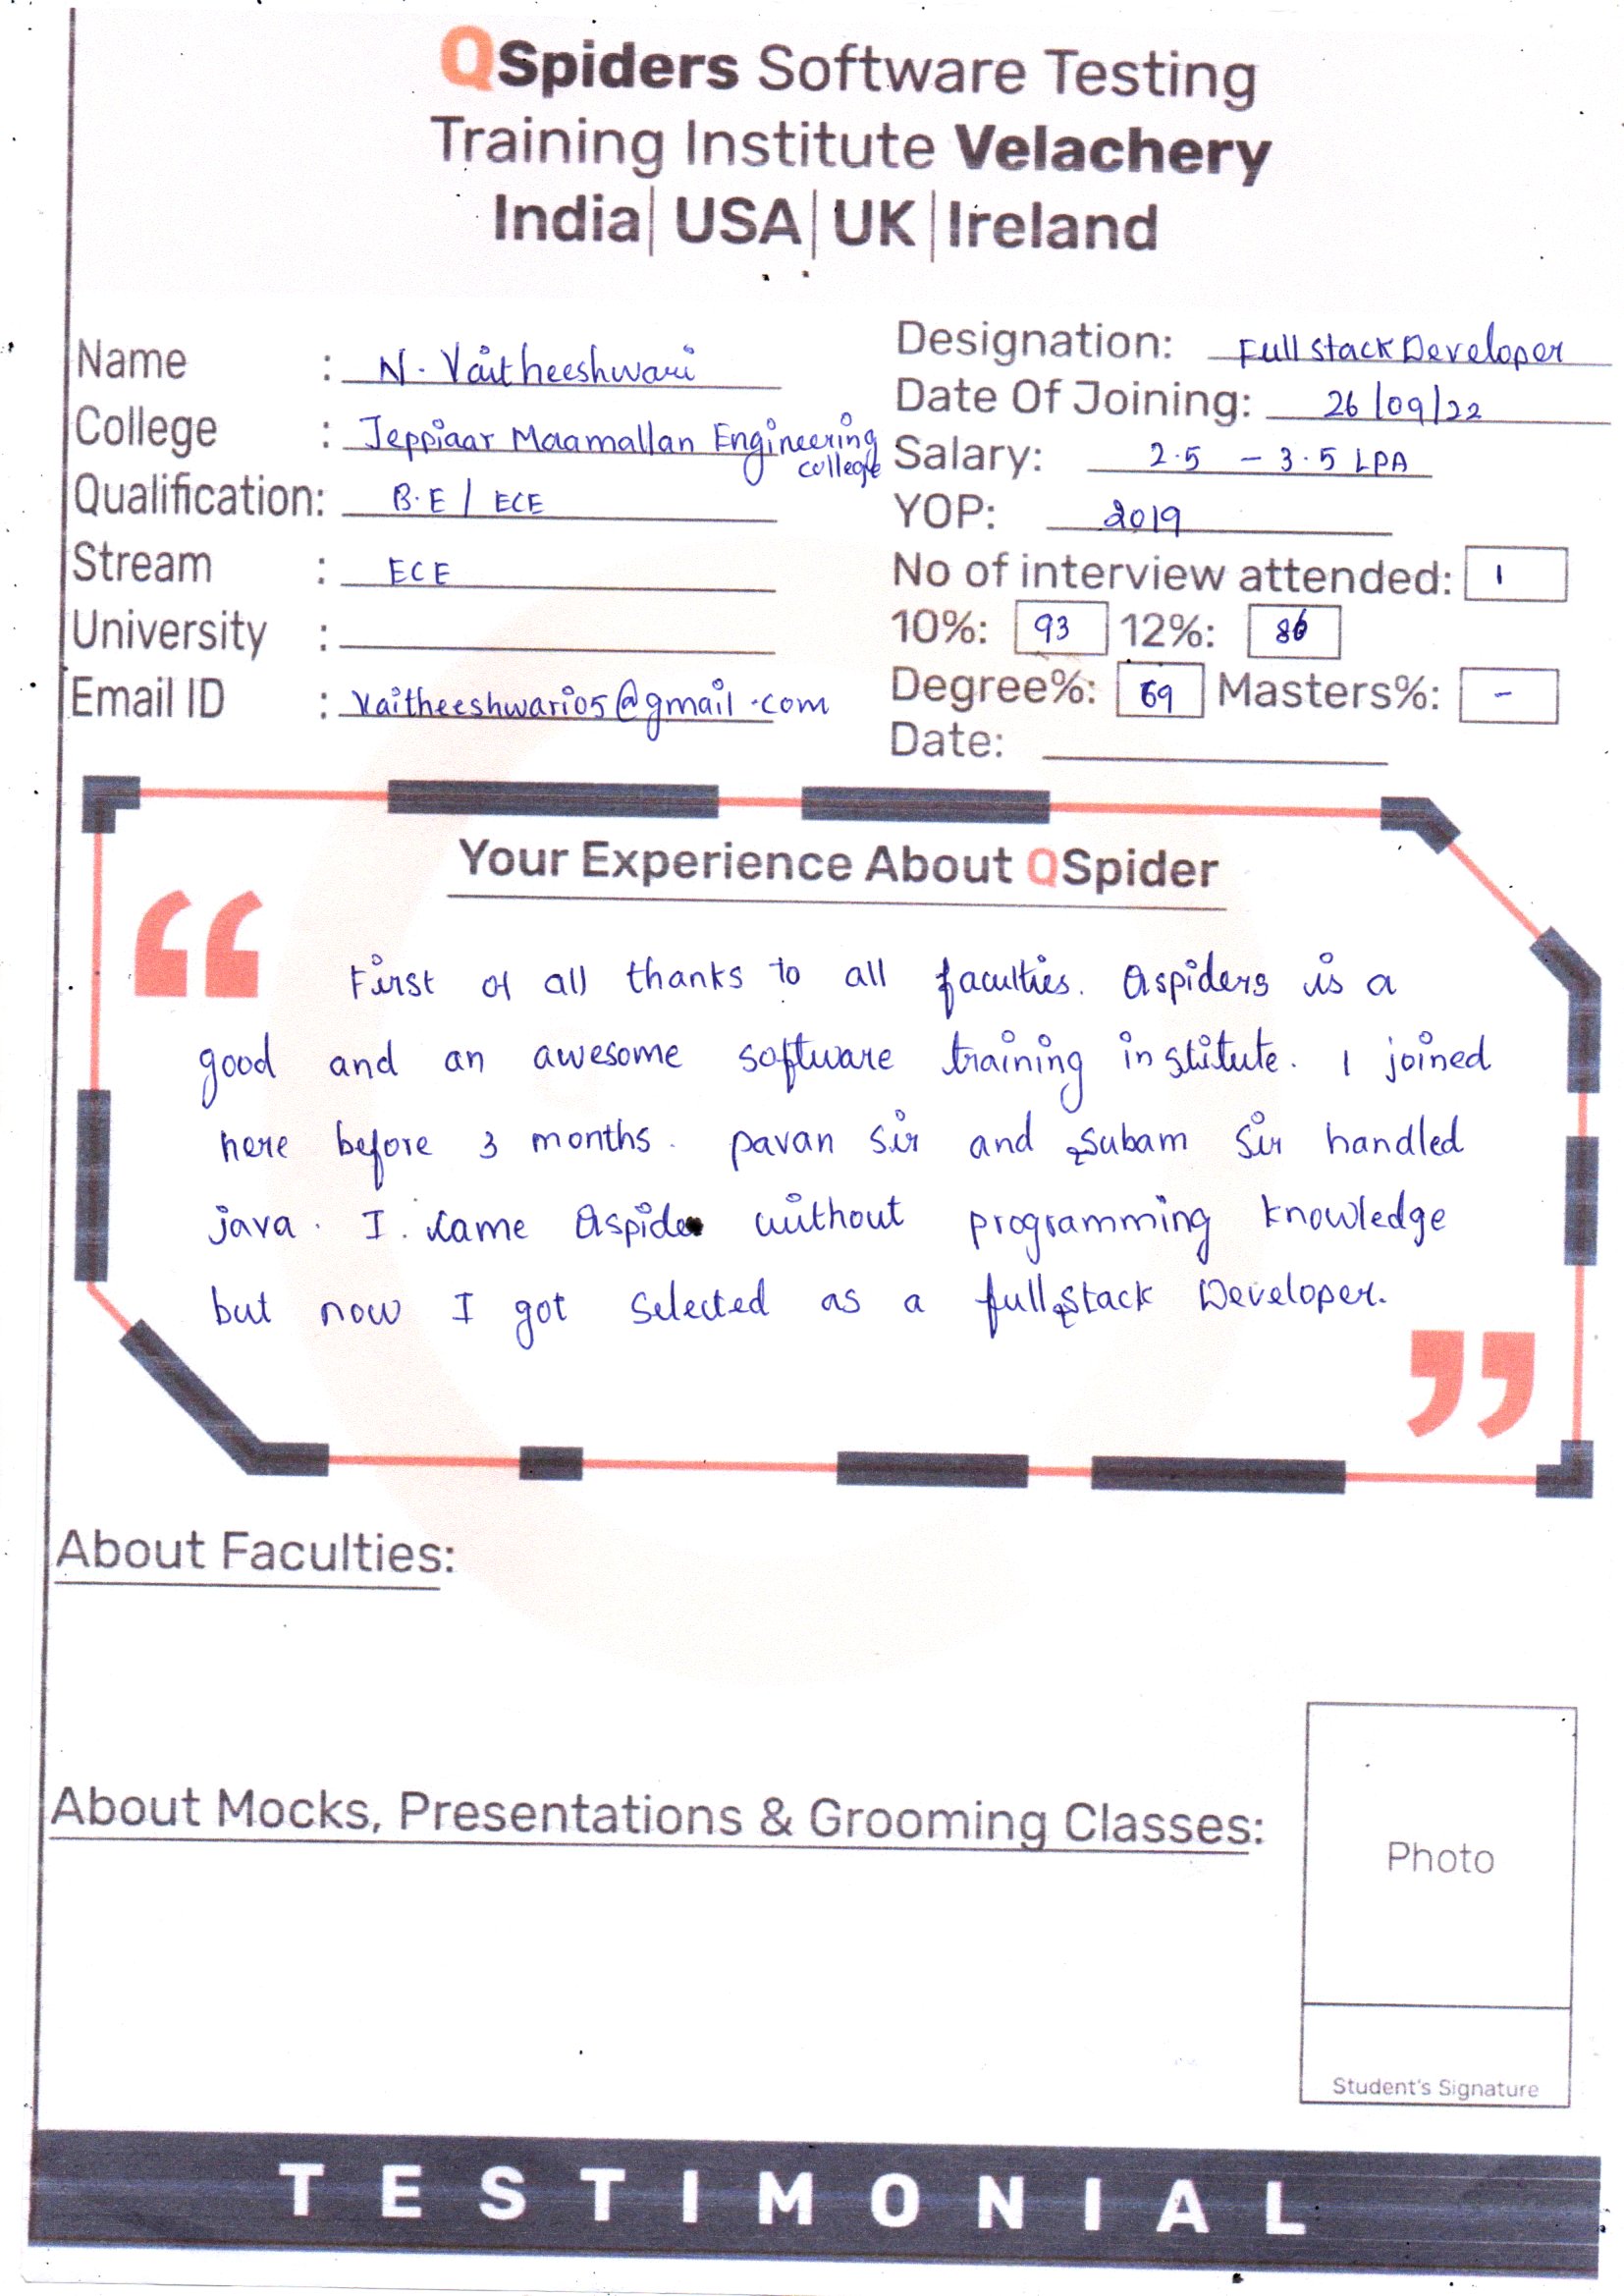 QSpiders Software Testing
Training Institute Velachery
India | USA | UK | Ireland
Name : N. Vaitheeshwari
College : Jeppiaar Maamallan Engineering
college
Qualification: B.E / ECE
Stream : ECE
University :
Email ID : Vaitheeshwari05@gmail.com
Designation: Full stack Developer
Date Of Joining: 26/09/22
Salary: 2.5 - 3.5 LPA
YOP: 2019
No of interview attended: 1
10%: 93 12%: 86
Degree%: 69 Masters%: -
Date:
Your Experience About QSpider
“
First of all thanks to all faculties. Qspiders is a
good and an awesome software training institute. I joined
here before 3 months. pavan Sir and Subam Sir handled
java. I came Qspider without programming knowledge
but now I got Selected as a fullstack Developer.
”
About Faculties:
About Mocks, Presentations & Grooming Classes:
Photo
Student's Signature
TESTIMONIAL